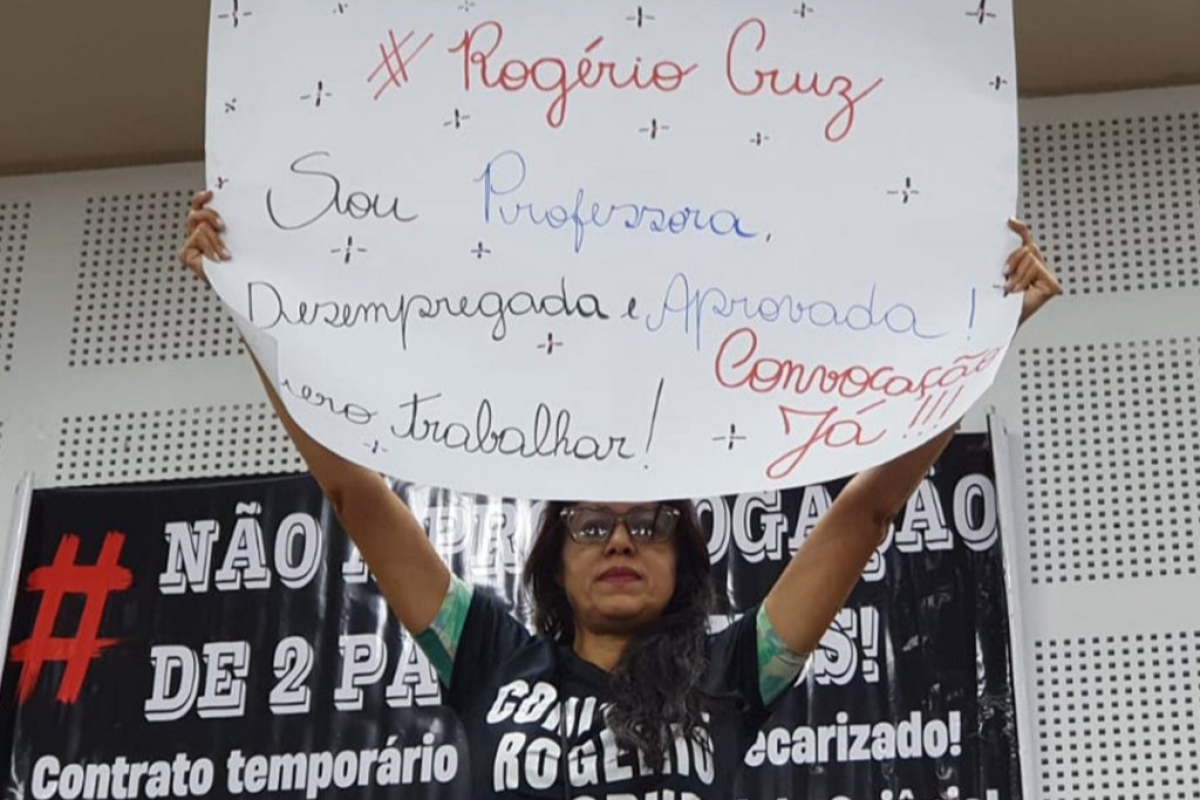 # Rogério Cruz
Sou Professora,
Desempregada e Aprovada!
ero trabalhar!
Convocação
Já!!!
# NÃO A PR OGAÇÃO
DE 2 PA S!
Contrato temporário ecarizado!
CON
ROGÉRIO